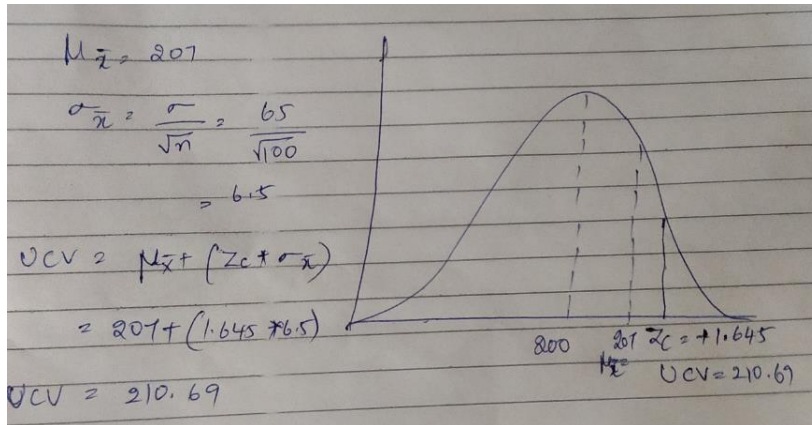 μx̄ = 207
σx̄ = σ/√n = 65/√100
= 6.5
UCV = μx̄ + (Zc * σx̄)
= 207 + (1.645 * 6.5)
UCV = 210.69
200 207 Zc = +1.645
μx̄= UCV = 210.69